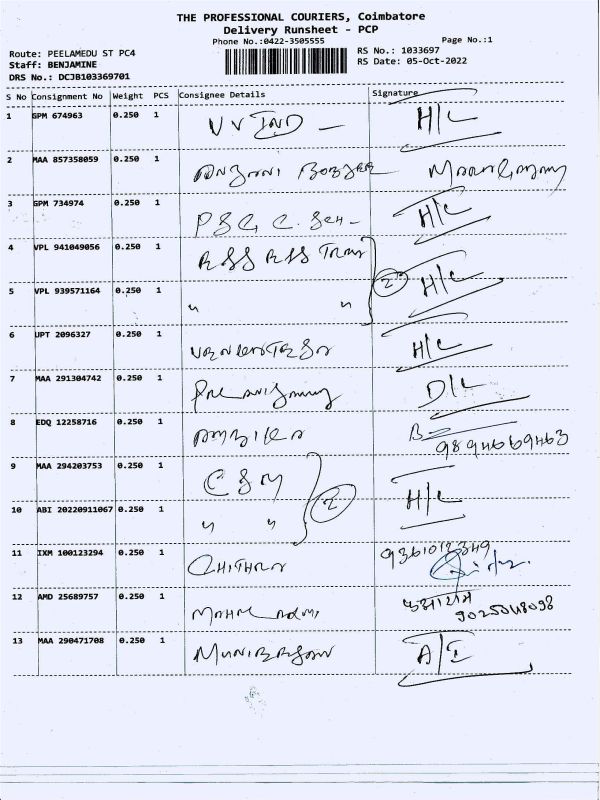 THE PROFESSIONAL COURIERS, Coimbatore
Delivery Runsheet - PCP
Phone No.:0422-3505555 Page No.:1
Route: PEELAMEDU ST PC4 RS No.: 1033697
Staff: BENJAMINE RS Date: 05-Oct-2022
DRS No.: DCJB103369701
S No Consignment No Weight PCS Consignee Details Signature
1 GPM 674963 0.250 1 V V IND - H/L
2 MAA 857358059 0.250 1
3 GPM 734974 0.250 1 PSG C. SCH - H/L
4 VPL 941049056 0.250 1 RSS RSS
5 VPL 939571164 0.250 1 " " 2 H/L
6 UPT 2096327 0.250 1 H/L
7 MAA 291304742 0.250 1 D/L
8 EDQ 12258716 0.250 1 AMBIKA 9894669463
9 MAA 294203753 0.250 1 C S M
10 ABI 20220911067 0.250 1 " " 2 H/L
11 IXM 100123294 0.250 1 CHITHRA 9361012349
12 AMD 25689757 0.250 1 9025048098
13 MAA 290471708 0.250 1 A/I